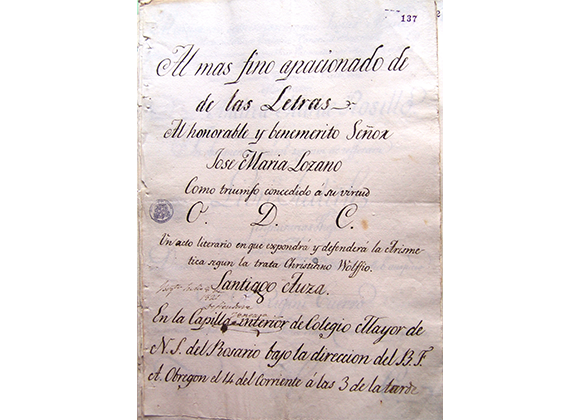 137
Al mas fino apacionado de
de las Letras
Al honorable y benemerito Señor
Jose Maria Lozano
Como triumfo concedido á su virtud
O. D. C.
Un acto literario en que expondrá y defenderá la Arisme-
tica segun la trata Christiano Wolffio.
Santiago Auza.
En la Capilla interior de Colegio Mayor de
N. S. del Rosario bajo la direcion del B. F.
A. Obregon el 14 del Corriente á las 3 de la tarde